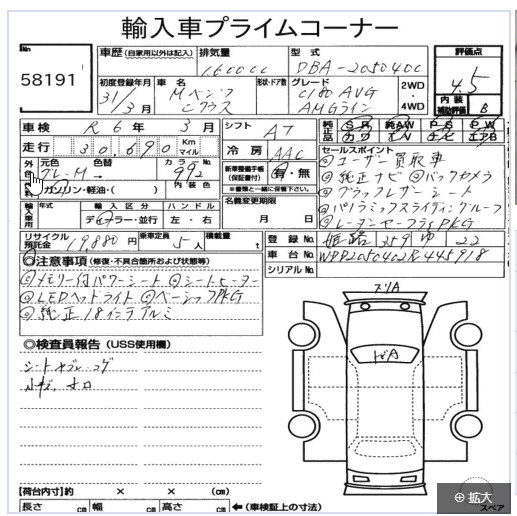 輸入車プライムコーナー
No.
58191
車歴 (自家用以外は記入)
排気量
1600cc
型式
DBA-205040C
評価点
4.5
初度登録年月
31/3月
車名
Mベンツ
Cクラス
形状・ドア数
グレード
C180 AVG
AMGライン
2WD
4WD
内装
補助評価
B
車検
R6年 3月
シフト
AT
純正品
SR
純AW
PS
PW
カワ
TV
ナビ
エアB
走行
30,690
Km
マイル
冷房
AAC
セールスポイント
◎ユーザー買取車
外色
元色
色替
グレーM→
カラーNo.
992
新車整備手帳
(保証書付)
有・無
※書類と一緒に保管下さい。
◎純正ナビ◎バックカメラ
ガソリン・軽油・( )
内装色
名義変更期限
月 日
◎ブラックレザーシート
輸入車用
年式
輸入区分
ハンドル
ディーラー・並行
左・右
◎パノラミックスライディングルーフ
◎レーダーセーフティPKG
リサイクル預託金
19880円
乗車定員
5人
積載量
t
登録No.
姫路 319 ゆ 22
◎注意事項 (修復・不具合箇所および状態等)
車台No.
WDD2050402R445918
シリアルNo.
◎メモリー付パワーシート◎シートヒーター
◎LEDヘッドライト◎ベーシックPKG
◎純正18インチアルミ
◎検査員報告 (USS使用欄)
シートヤブレ・コゲ
小キズ、
【荷台内寸】約 × × (cm)
長さ cm 幅 cm 高さ cm
←(車検証上の寸法)
スペア
拡大